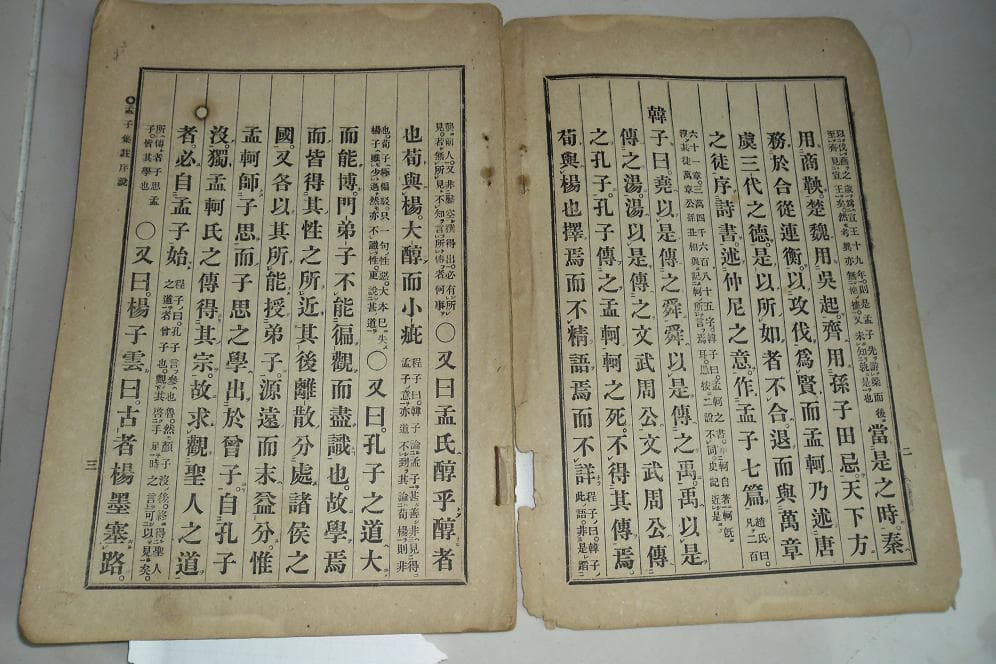 二
以伐燕之歲爲宣王十九年。則是孟子先游梁而後
至齊見宣王矣。然考異亦無他據。又未知孰是也
當是之時。秦
用商鞅楚魏用吳起。齊用孫子田忌天下方
務於合從連衡。以攻伐爲賢而孟軻乃述唐
虞三代之德。是以所如者不合。退而與萬章
之徒序詩書述仲尼之意。作孟子七篇。
趙氏曰
凡二百
六十一章。三萬四千六百八十五字。韓子曰孟軻之書。非軻自著軻既
沒其徒萬章公孫丑相與記軻所言焉耳。愚按二說不同史記近是
韓子曰。堯以是傳之舜舜以是傳之禹。禹以是
傳之湯湯以是傳之文武周公文武周公傳
之孔子。孔子傳之孟軻軻之死。不得其傳焉
荀與楊也擇焉而不精語焉而不詳
程子曰韓子
此語。非是蹈
襲前人。又非鑿空撰得出。必有所
見。若無所見。不知言所傳者何事
○又曰孟氏醇乎醇者
也荀與楊。大醇而小疵
程子曰。韓子論孟子甚善。非見得
孟子意。亦道不到。其論荀楊則非
也。荀子極偏駁。只一句性惡。大本已失。
楊子雖少過。然亦不識性。更說甚道
○又曰。孔子之道大
而能博。門弟子不能徧觀而盡識也。故學焉
而皆得其性之所近其後離散分處諸侯之
國。又各以其所能授弟子。源遠而末益分。惟
孟軻師子思而子思之學出於曾子。自孔子
沒獨孟軻氏之傳得其宗。故求觀聖人之道
者。必自孟子始。
程子曰。孔子言參也魯。然顏子沒後。終得聖人
之道者曾子也。觀其啓手足時之言。可以見矣。
所傳者子思孟
子。皆其學也
○又曰。楊子雲曰。古者楊墨塞路。
◎孟子集註序說
三